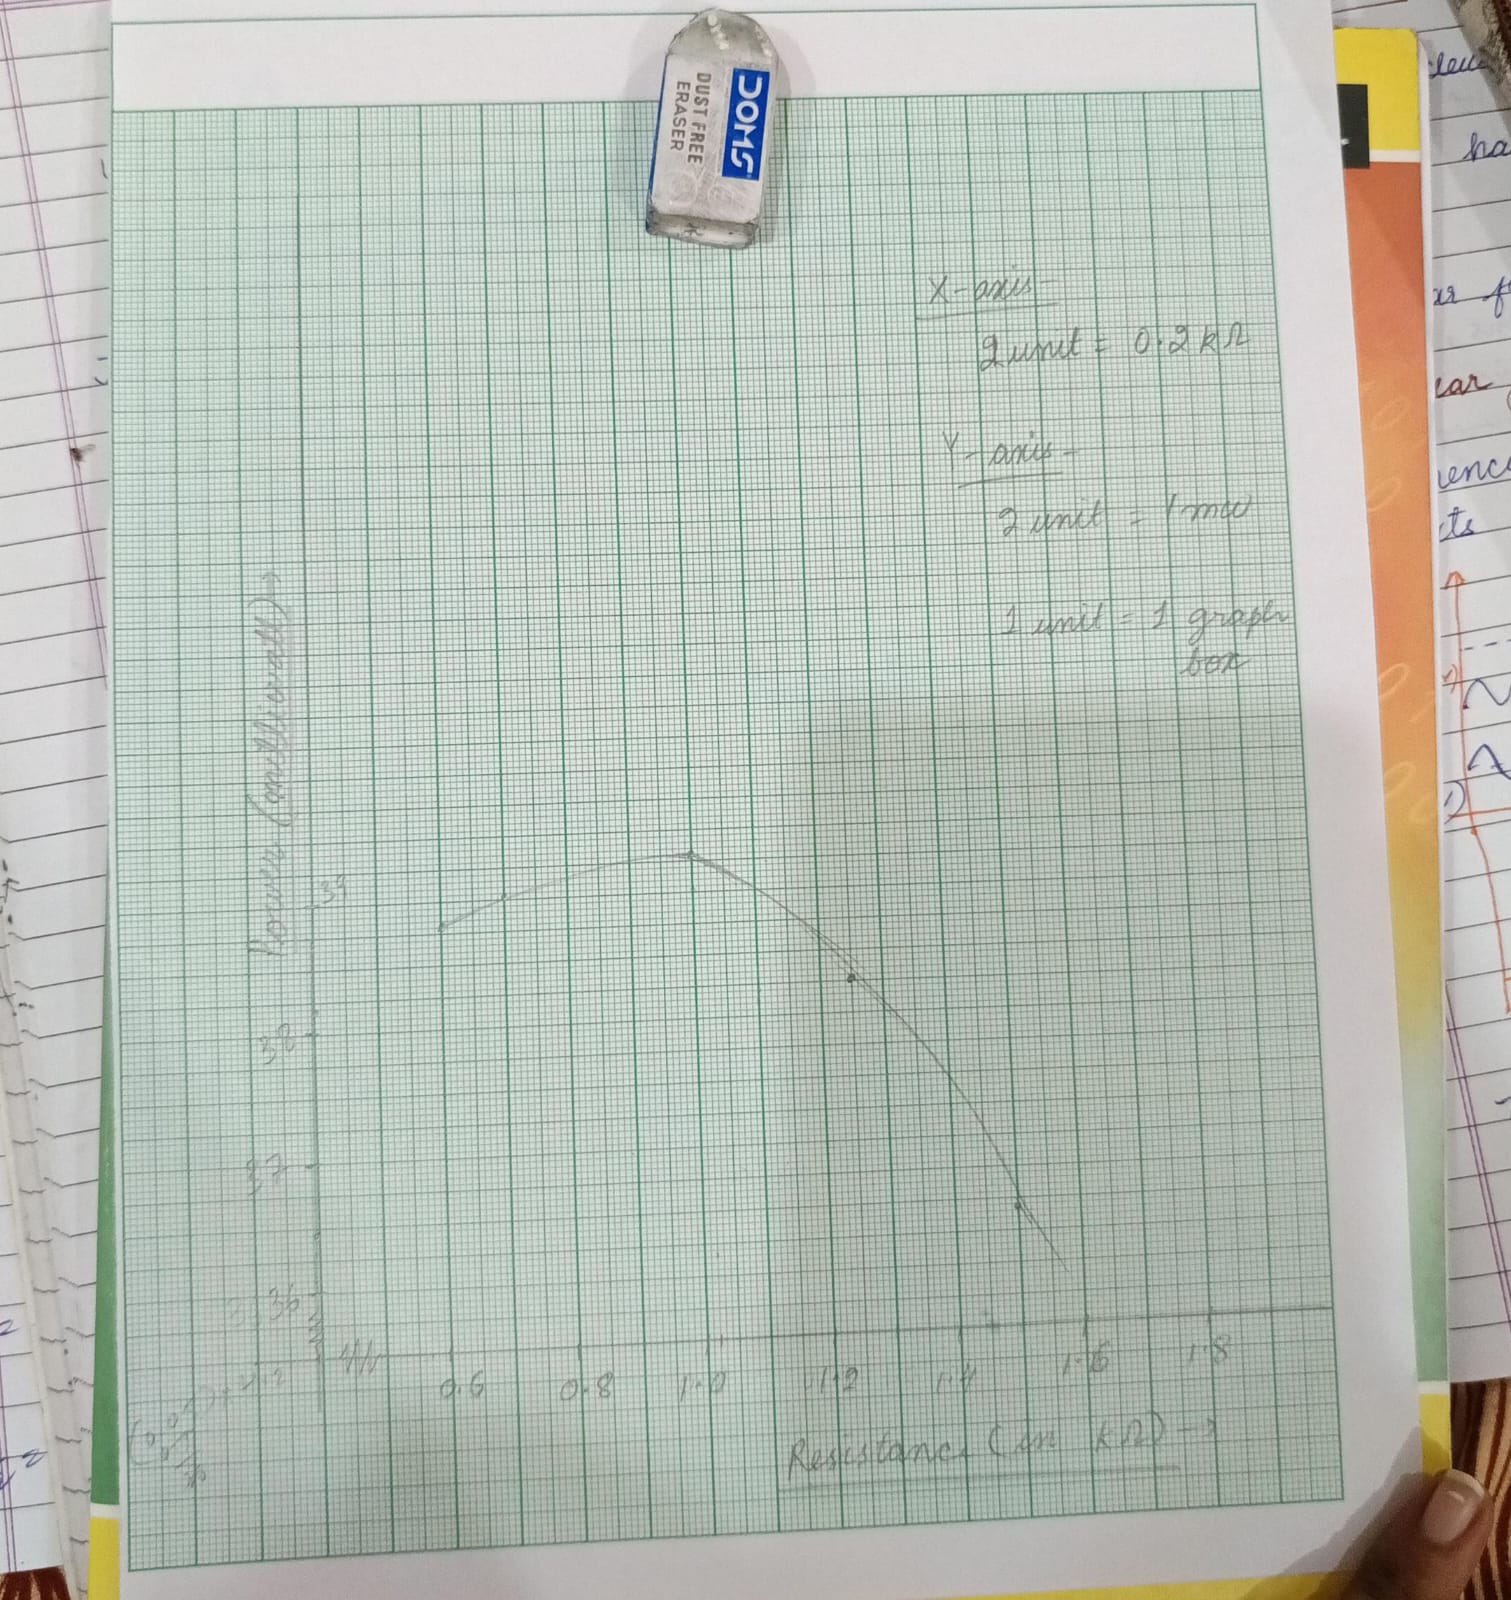 DOMS
DUST FREE
ERASER
X-axis-
2 unit = 0.2 kΩ
Y-axis-
2 unit = 1 mw
1 unit = 1 graph
box
Power (milliwatt) →
39
38
37
36
0.6 0.8 1.0 1.2 1.4 1.6 1.8
Resistance (in kΩ) →
ha
ear
ts